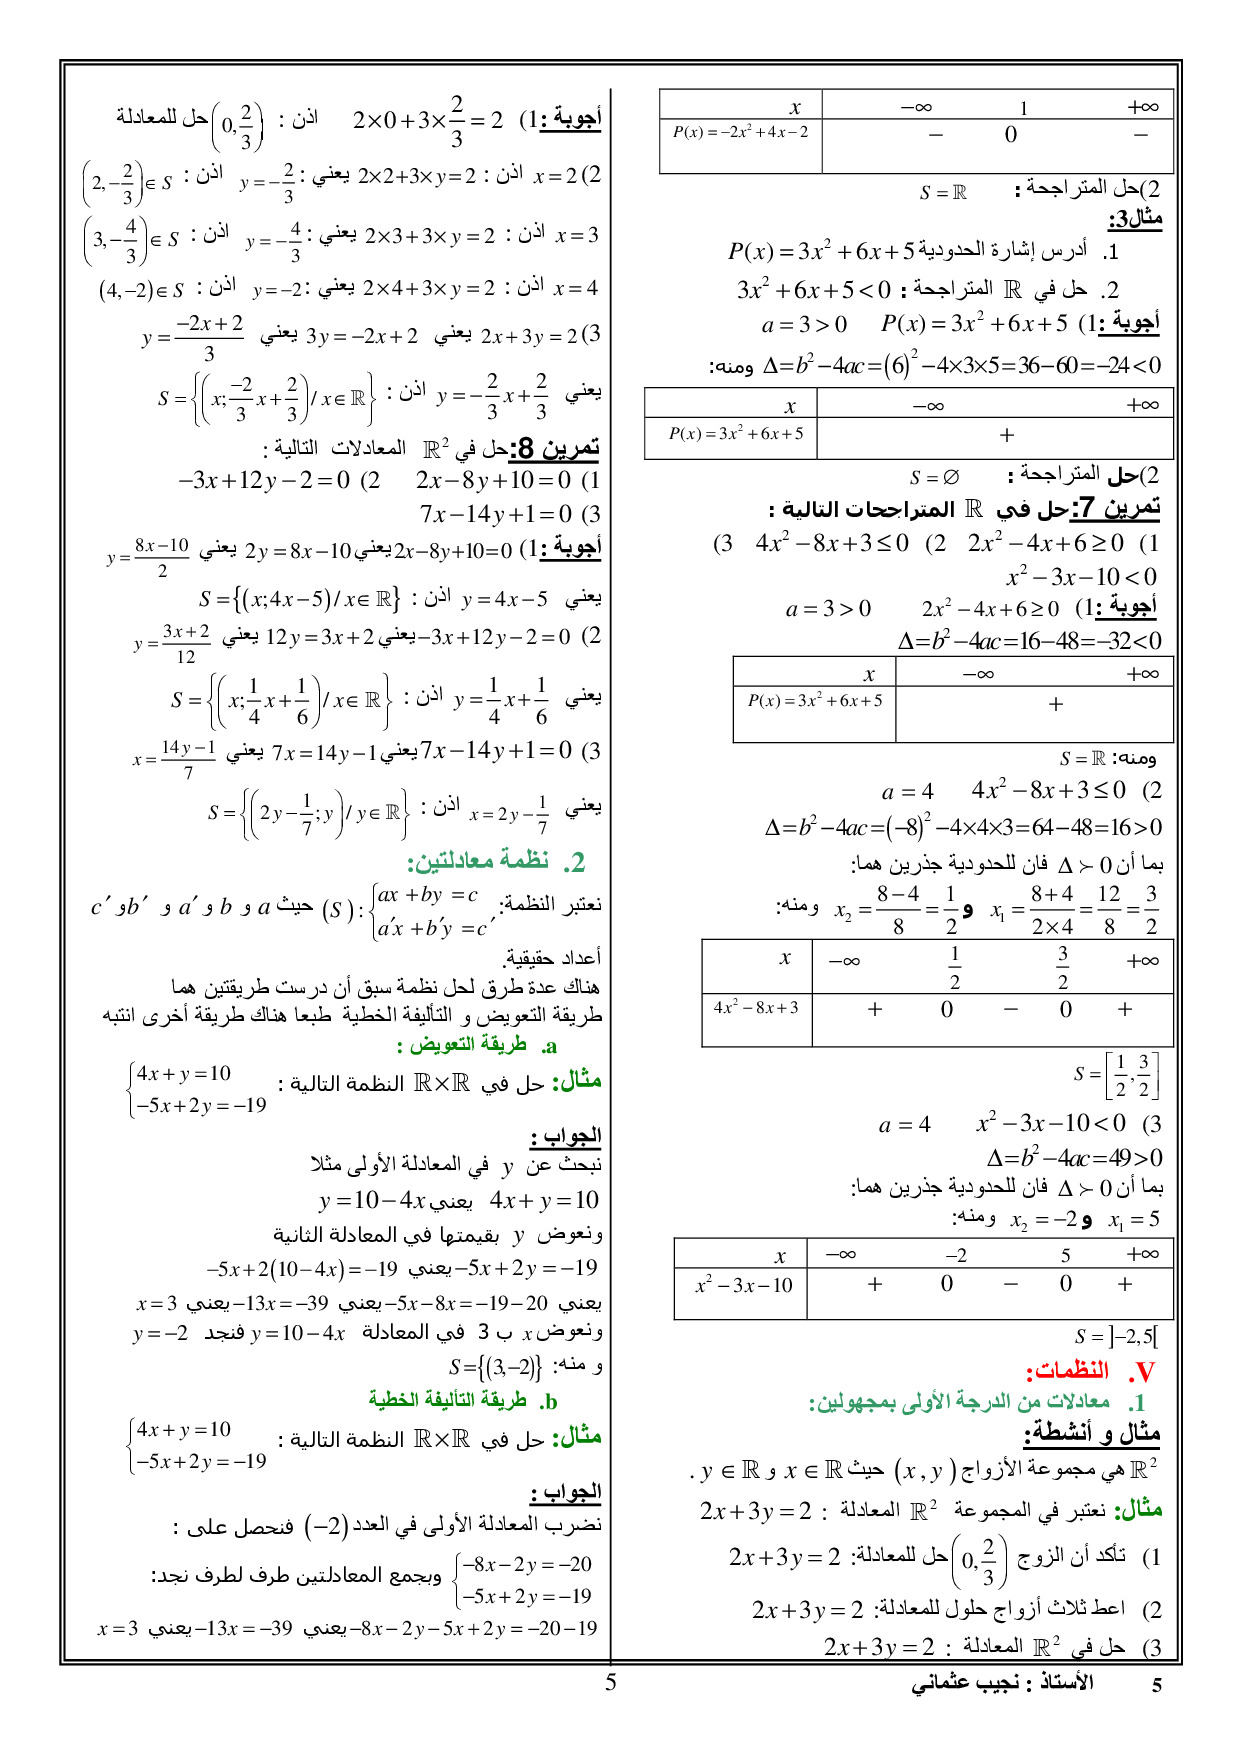 x −∞ 1 +∞
P(x) = −2x² + 4x − 2 − 0 −
2)حل المتراجحة : S = ℝ
مثال3:
1. أدرس إشارة الحدودية P(x) = 3x² + 6x + 5
2. حل في ℝ المتراجحة : 3x² + 6x + 5 < 0
أجوبة :1) P(x) = 3x² + 6x + 5 a = 3 > 0
Δ = b² − 4ac = (6)² − 4×3×5 = 36 − 60 = −24 < 0 ومنه:
x −∞ +∞
P(x) = 3x² + 6x + 5 +
2)حل المتراجحة : S = ∅
تمرين 7:حل في ℝ المتراجحات التالية :
1) 2x² − 4x + 6 ≥ 0 2) 4x² − 8x + 3 ≤ 0 3)
x² − 3x − 10 < 0
أجوبة :1) 2x² − 4x + 6 ≥ 0 a = 3 > 0
Δ = b² − 4ac = 16 − 48 = −32 < 0
x −∞ +∞
P(x) = 3x² + 6x + 5 +
ومنه: S = ℝ
2) 4x² − 8x + 3 ≤ 0 a = 4
Δ = b² − 4ac = (−8)² − 4×4×3 = 64 − 48 = 16 > 0
بما أن Δ ≻ 0 فان للحدودية جذرين هما:
x₁ = (8+4)/(2×4) = 12/8 = 3/2 و x₂ = (8−4)/8 = 1/2 ومنه:
x −∞ 1/2 3/2 +∞
4x² − 8x + 3 + 0 − 0 +
S = [1/2, 3/2]
3) x² − 3x − 10 < 0 a = 4
Δ = b² − 4ac = 49 > 0
بما أن Δ ≻ 0 فان للحدودية جذرين هما:
x₁ = 5 و x₂ = −2 ومنه:
x −∞ −2 5 +∞
x² − 3x − 10 + 0 − 0 +
S = ]−2,5[
V. النظمات:
1. معادلات من الدرجة الأولى بمجهولين:
مثال و أنشطة:
ℝ² هي مجموعة الأزواج (x , y) حيث x ∈ ℝ و y ∈ ℝ .
مثال: نعتبر في المجموعة ℝ² المعادلة : 2x + 3y = 2
1) تأكد أن الزوج (0, 2/3) حل للمعادلة: 2x + 3y = 2
2) اعط ثلاث أزواج حلول للمعادلة: 2x + 3y = 2
3) حل في ℝ² المعادلة : 2x + 3y = 2
أجوبة :1) 2×0 + 3×2/3 = 2 اذن : (0, 2/3) حل للمعادلة
2) x = 2 اذن : 2×2 + 3×y = 2 يعني : y = −2/3 اذن : (2, −2/3) ∈ S
x = 3 اذن : 2×3 + 3×y = 2 يعني : y = −4/3 اذن : (3, −4/3) ∈ S
x = 4 اذن : 2×4 + 3×y = 2 يعني : y = −2 اذن : (4, −2) ∈ S
3) 2x + 3y = 2 يعني 3y = −2x + 2 يعني y = (−2x + 2)/3
يعني y = −2/3 x + 2/3 اذن : S = {(x; −2/3 x + 2/3) / x ∈ ℝ}
تمرين 8:حل في ℝ² المعادلات التالية :
1) 2x − 8y + 10 = 0 2) −3x + 12y − 2 = 0
3) 7x − 14y + 1 = 0
أجوبة :1) 2x − 8y + 10 = 0 يعني 2y = 8x − 10 يعني y = (8x − 10)/2
يعني y = 4x − 5 اذن : S = {(x; 4x − 5) / x ∈ ℝ}
2) −3x + 12y − 2 = 0 يعني 12y = 3x + 2 يعني y = (3x + 2)/12
يعني y = 1/4 x + 1/6 اذن : S = {(x; 1/4 x + 1/6) / x ∈ ℝ}
3) 7x − 14y + 1 = 0 يعني 7x = 14y − 1 يعني x = (14y − 1)/7
يعني x = 2y − 1/7 اذن : S = {(2y − 1/7; y) / y ∈ ℝ}
2. نظمة معادلتين:
نعتبر النظمة: (S) : { ax + by = c حيث a و b و a′ و b′ و c′
a′x + b′y = c′
أعداد حقيقية.
هناك عدة طرق لحل نظمة سبق أن درست طريقتين هما
طريقة التعويض و التأليفة الخطية طبعا هناك طريقة أخرى انتبه
a. طريقة التعويض :
مثال: حل في ℝ×ℝ النظمة التالية : { 4x + y = 10
−5x + 2y = −19
الجواب :
نبحث عن y في المعادلة الأولى مثلا
4x + y = 10 يعني y = 10 − 4x
ونعوض y بقيمتها في المعادلة الثانية
−5x + 2y = −19 يعني −5x + 2(10 − 4x) = −19
يعني −5x − 8x = −19 − 20 يعني −13x = −39 يعني x = 3
ونعوض x ب 3 في المعادلة y = 10 − 4x فنجد y = −2
و منه: S = {(3, −2)}
b. طريقة التأليفة الخطية
مثال: حل في ℝ×ℝ النظمة التالية : { 4x + y = 10
−5x + 2y = −19
الجواب :
نضرب المعادلة الأولى في العدد (−2) فنحصل على :
{ −8x − 2y = −20 وبجمع المعادلتين طرف لطرف نجد:
−5x + 2y = −19
−8x − 2y − 5x + 2y = −20 − 19 يعني −13x = −39 يعني x = 3
5 الأستاذ : نجيب عثماني 5